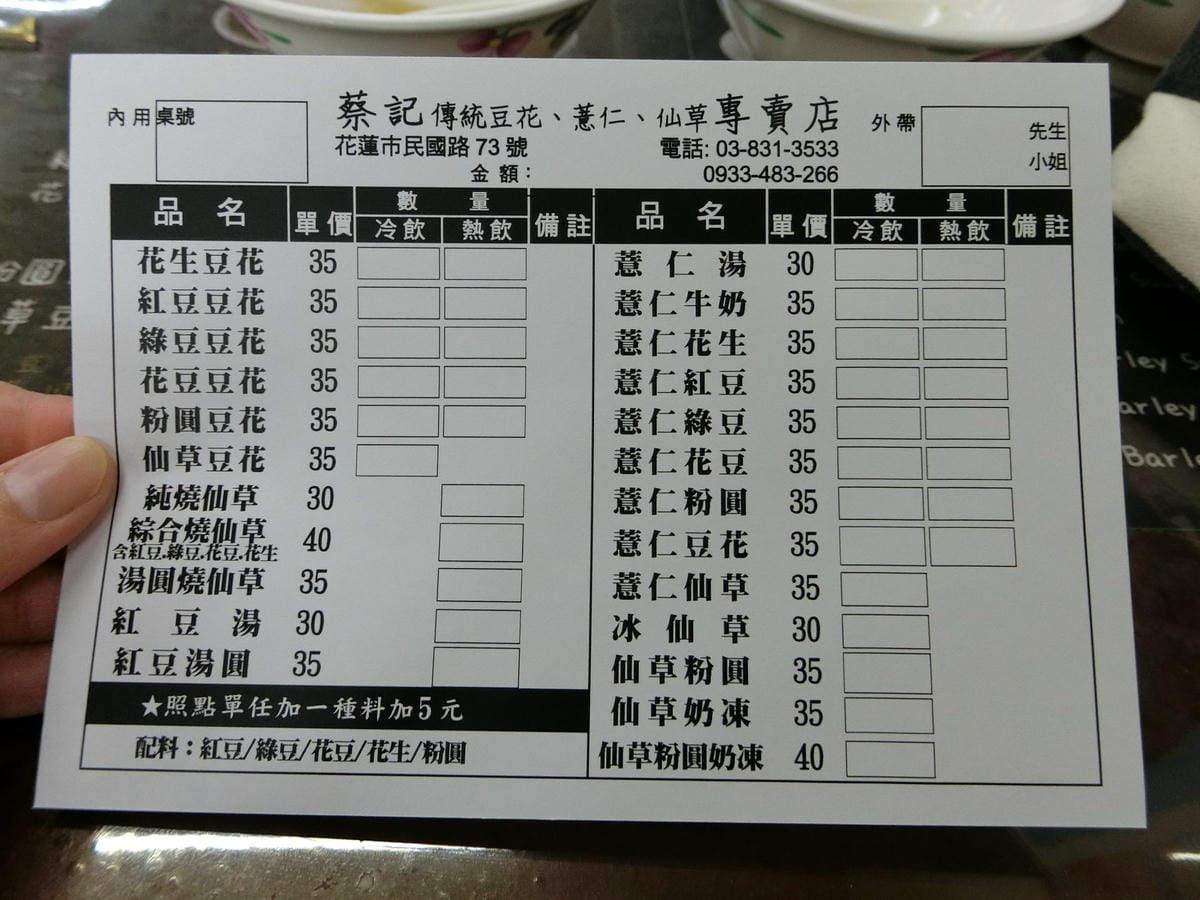 內用桌號
蔡記傳統豆花、薏仁、仙草專賣店
外帶
先生
小姐
花蓮市民國路 73 號
電話: 03-831-3533
金額:
0933-483-266
品名 單價 數量 冷飲 熱飲 備註
花生豆花 35
紅豆豆花 35
綠豆豆花 35
花豆豆花 35
粉圓豆花 35
仙草豆花 35
純燒仙草 30
綜合燒仙草 40
含紅豆.綠豆.花豆.花生
湯圓燒仙草 35
紅豆湯 30
紅豆湯圓 35
★照點單任加一種料加5元
配料:紅豆/綠豆/花豆/花生/粉圓
品名 單價 數量 冷飲 熱飲 備註
薏仁湯 30
薏仁牛奶 35
薏仁花生 35
薏仁紅豆 35
薏仁綠豆 35
薏仁花豆 35
薏仁粉圓 35
薏仁豆花 35
薏仁仙草 35
冰仙草 30
仙草粉圓 35
仙草奶凍 35
仙草粉圓奶凍 40